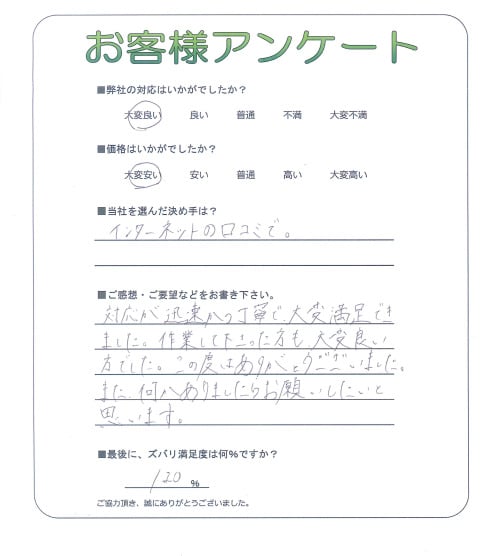 お客様アンケート
■弊社の対応はいかがでしたか？
大変良い 良い 普通 不満 大変不満
■価格はいかがでしたか？
大変安い 安い 普通 高い 大変高い
■当社を選んだ決め手は？
インターネットの口コミで。
■ご感想・ご要望などをお書き下さい。
対応が迅速かつ丁寧で、大変満足でき
ました。作業して下さった方も、大変良い
方でした。この度はありがとうございました。
また、何かありましたらお願いしたいと
思います。
■最後に、ズバリ満足度は何％ですか？
120 %
ご協力頂き、誠にありがとうございました。